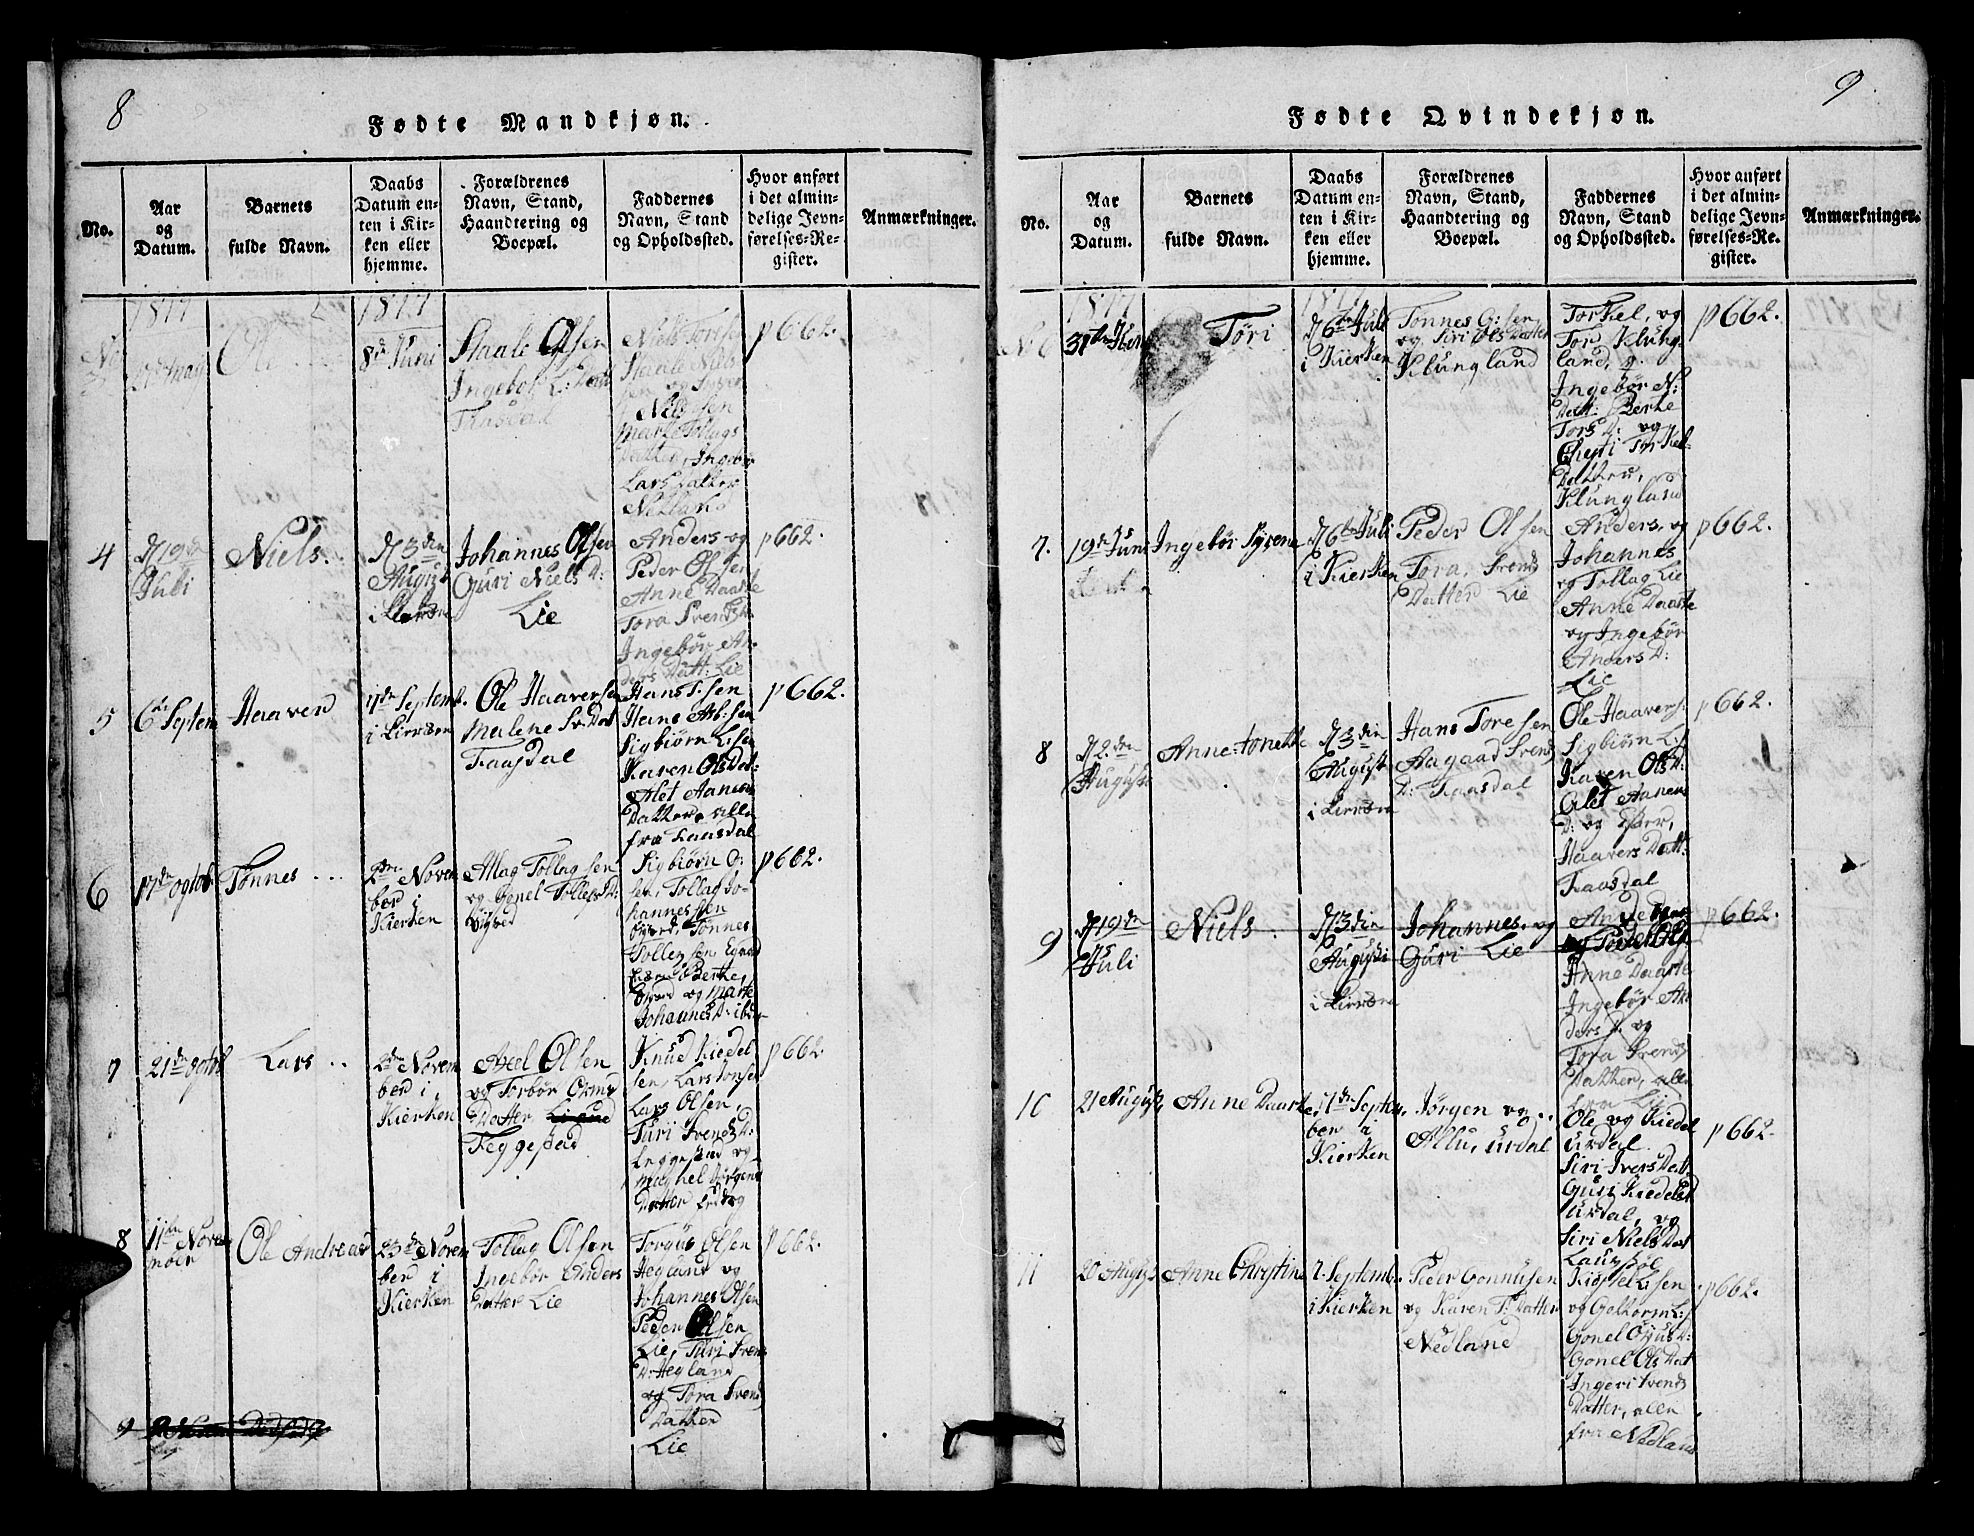 8
Fødte Mandkjøn.
No.
Aar
og
Datum.
Barnets
fulde Navn.
Daabs
Datum en-
ten i Kir-
ken eller
hjemme.
Forældrenes
Navn, Stand,
Haandtering og
Boepæl.
Faddernes
Navn, Stand
og Opholdssted.
Hvor anført
i det almin-
delige Jevn-
førelses-Re-
gister.
Anmærkninger.
1817
1817
8de Juni
Staale Olsen
Ingebor L: Datt
Niels Toresen
Staale Niels
sen og
Nielssen
Marte Tollags
Datter, Ingebør
Lars Datter
Nedland
p 662.
4
d 19de
Juli
Niels.
d 3die
August
Johannes Olsen
Guri Niels D:
Lie
Anders og
Peder Olsen
Anne Daarte
Tora Svends
Ingebør An-
ders Datt: Lie
p 662.
5
6te Septem
Haaverd
7de Septemb.
Ole Haaversen
Malene Sv: Dat
Faasdal
Hans T: sen
Hans Ab: sen
Sigbiørn L: sen
Karen Ols Dat:
Alet Aanens
Datter, alle
fra Faasdal
p 662.
6
17de Ogtob
Tønnes
2den Novem
ber i
Kierken
Atlag Tollagsen
og Gonel Tollefs D:
Sigbiørn O:
Tollag Jo-
hannessen
Tønnes
Tollefsen
Berthe
og Marte
Johannes D:
p 662.
7
21de Ogtob
Lars
2den Novem
ber i
Kierken
Axel Olsen
og Torbør Orms
Datter
Feggestad
Knud Kiedel
sen, Lars Jonsen
Lars Olsen,
Turi Svends D:
og
Datter
p 662.
8
11te Novem
Ole Andreas
23de Novem
ber i
Kierken
Tollag Olsen
Ingebør Anders
Datter Lie
Torgus Olsen
Hegland og
Johannes Olsen
Peder Olsen
Lie, Turi Svens
D: Hegland
og Tora Svends
Datter
Lie
p 662.
9
9
Fødte Qvindekjøn.
No.
Aar
og
Datum.
Barnets
fulde Navn.
Daabs
Datum en-
ten i Kir-
ken eller
hjemme.
Forældrenes
Navn, Stand,
Haandtering og
Boepæl.
Faddernes
Navn, Stand
og Opholdssted.
Hvor anført
i det almin-
delige Jevn-
førelses-Re-
gister.
Anmærkninger.
1817
Tøri
d 6te Juli
i Kierken
Tønnes G: sen
og Siri Ols Datter
Klungland
Torkel, og
Tor Klung
land, og
Ingebør N:
Datt: Berte
Tors D: og
Torkel
Datter,
Klungland
p 662.
7.
19de Juni
Ingebør Syrene
d 6te Juli
i Kierken
Peder Olsen
Tora, Svends
Datter Lie
Anders, og
Johannes
og Tollag Lie
Anne Daarte
og Ingebør
Anders D:
Lie
p 662.
8
d 2den
August
Anne Tonette
d 3die
August
Hans Toresen
Aagaad Svends
D: Faasdal
Ole Haavers:
Sigbiørn L:
Karen Ols D:
Alet Aanens
D: og
Haavers Datt:
Faasdal
p 662.
9
d 19de
Juli
Niels
d 3die
August
Johannes, og
Guri Lie
og Peder Ols
Anne Daarte
Ingebør An
ders D. og
Tora Svends
Datter, alle
fra Lie
p 662.
10
21 August,
Anne Daarte,
7de Septem
ber i
Kierken
Jørgen og
Urdal
Ole og Kiedel
Urdal
Siri Ivers Dat
Guri Kiedels D
Urdal, og
Siri Niels Dat
p 662.
11
20 August
Anne Christine
7. Septemb.
i Kierken
Peder Gonnusen
og Karen T: Datter
Nedland
L: sen
og Goltorm L:
Gonel
Gonel Ols Dat
Ingeri Svends
Datter, alle
fra Nedland
p 662.